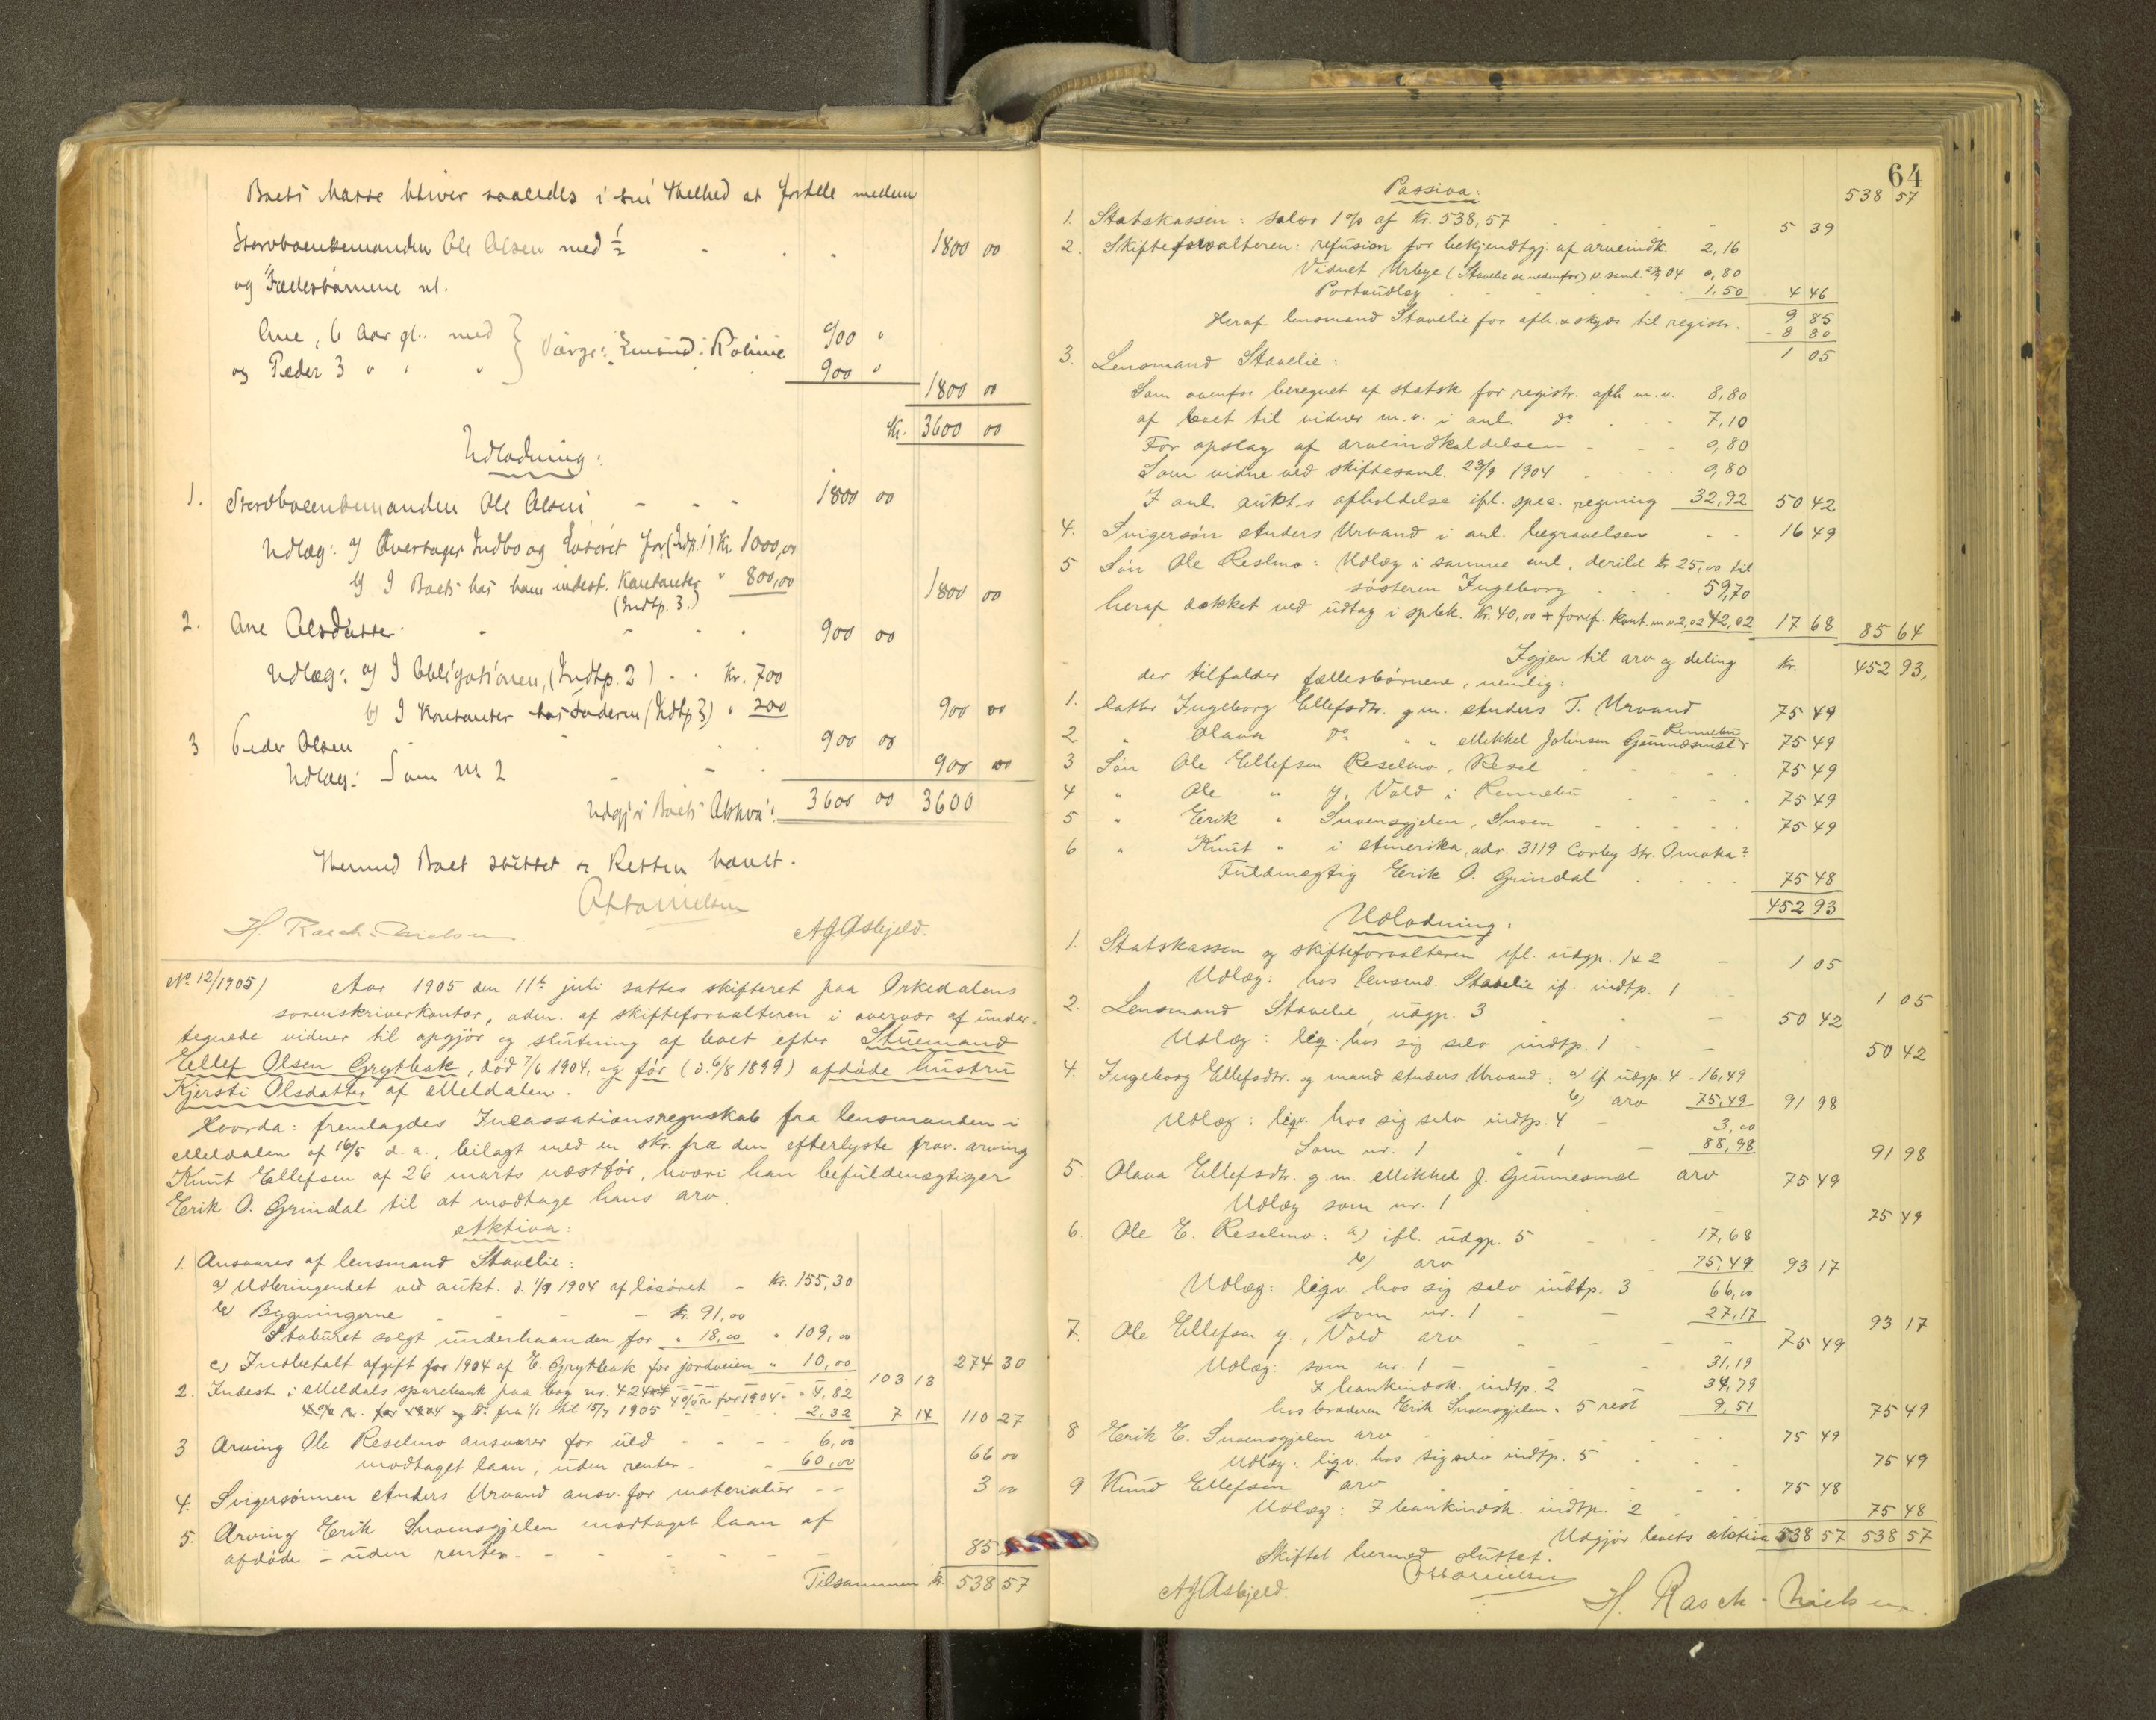 Boets Masse bliver saaledes i sin Helhed at fordele mellem
Stervboenkemanden Ole Olsen med 1/2 - - - 1800 00
og Fællesbørnene nl.
Ane, 6 Aar gl. med } Værge: 900 "
og Peder 3 " " " 900 "
1800 00
Kr. 3600 00
Udlodning:
1. Stervboenkemanden Ole Olsen - - - 1800 00
Udlæg: a) Overtager Indbo og Løsøret for (Indp. 1) Kr. 1000,00
b) I Boets hos ham indest. Kontanter " 800,00 1800 00
(Indtp. 3.)
2. Ane Olsdatter - - - 900 00
Udlæg: a) I Obligationen, (Indtp. 2) - - Kr. 700
b) I Kontanter hos Faderen (Indtp 3) " 200 900 00
3 Peder Olsen 900 00
Udlæg: Som No 2 - - - 900 00
Udgjør Boets Aktiva: 3600 00 3600
Hermed Boet sluttet og Retten hævet.
H. Rasch-Nielsen AJAsbjeld.
No 12/1905) Aar 1905 den 11te juli sattes skifteret paa Orkedalens
sorenskriverkontor, adm. af skifteforvalteren i overvær af under-
tegnede vidner til opgjør og slutning af boet efter Stuemand
Ellef Olsen Grytbak, død 7/6 1904, og før (d. 6/8 1899) afdøde hustru
Kjersti Olsdatter af Meldalen.
Hvorda: fremlagdes Incassationsregnskab fra lensmanden i
Meldalen af 16/5 d.a., bilagt med en skr. fra den efterlyste frav. arving
Knut Ellefsen af 26 marts næstfør, hvori han befuldmægtiger
Erik O. Grindal til at modtage hans arv.
Aktiva:
1. Ansvares af lensmand Stavelie:
a) Udbringendet ved aukt. d. 1/9 1904 af løsøret - Kr. 155,30
b) Bygningerne - - - Kr. 91,00
Staburet solgt underhaanden for " 18,00 " 109,00
c) Indbetalt afgift for 1904 af E. Grytbak for jordveien " 10,00 274 30
2. Indest. i Meldals sparebank paa bog nr. 424 - - - 103 13
4% r. for 1904 og do fra 1/1 til 15/7 1905 4% r. for 1904 - " 4,82
2,32 7 14 110 27
3 Arving Ole Reselmo ansvarer for uld - - - - 6,00
modtaget laan, uden renter - - 60,00 66 00
4. Svigersønnen Anders Urvand ansv. for materialier - - 3 00
5. Arving Erik Svensgjelen modtaget laan af
afdøde - uden renter - - - - - - 85
Tilsammen Kr. 538 57
64
Passiva: 538 57
1. Statskassen: salær 1% af Kr. 538,57 - - - 5 39
2. Skifteforvalteren: refusion for bekjendtgj. af arveindk. 2,16
Vidnet Urbye (Stavelie se nedenfor) v. saml. 23/9 04 0,80
Portoudlæg 1,50 4 46
9 85
Heraf lensmand Stavelie for afh. & skyds til registr. - 8 80
1 05
3. Lensmand Stavelie:
Som ovenfor beregnet af statsk for registr. afh m.v. 8,80
af boet til vidner m.v. i anl. do - - - 7,10
For opslag af arveindkaldelsen - - - 0,80
Som vidne ved skiftesaml. 23/9 1904 - - - 0,80
I anl. aukt.s afholdelse ifl. spec. regning 32,92 50 42
4. Svigersøn Anders Urvand i anl. begravelsen - - 16 49
5 Søn Ole Reslmo: Udlæg i samme anl., deribl. kr. 25,00 til
søsteren Ingeborg - - - 59,70
heraf dækket ved udtag i spbk. Kr. 40,00 + foref. kont. m.v. 2,02 42,02 17 68 85 64
Igjen til arv og deling Kr. 452 93,
der tilfalder fællesbørnene, nemlig:
1. Datter Ingeborg Ellefsdtr. g.m. Anders T. Urvand 75 49
2 " Olava do " " Mikkel Johnsen Gunnesmæl Rennebu 75 49
3 Søn Ole Ellefsen Reselmo, Resel - - - 75 49
4 " Ole " y, Vold i Rennebu - - - 75 49
5 " Erik " Svensgjelen, Sneen - - - 75 49
6 " Knut " i Amerika, adr. 3119 Corby Str. Omaha?
Fuldmægtig Erik O. Grindal - - - 75 48
452 93
Udlodning:
1. Statskassen og skifteforvalteren ifl. udgp. 1 & 2 - 1 05
Udlæg: hos lensmd. Stavelie if. indtp. 1 - - 1 05
2. Lensmand Stavelie, udgp. 3 - - - 50 42
Udlæg: liq. hos sig selv indtp. 1 - - 50 42
4. Ingeborg Ellefsdtr. og mand Anders Urvand: a) if udgp. 4 - 16,49
b) arv 75,49 91 98
Udlæg: liqv. hos sig selv indtp. 4 - 3,00
Som nr. 1 " 1 - 88,98 91 98
5. Olava Ellefsdtr. g.m. Mikkel J. Gunnesmæl arv 75 49
Udlæg som nr. 1 - 75 49
6. Ole E. Reselmo: a) ifl. udgp. 5 - - 17,68
b) arv 75,49 93 17
Udlæg: liqv. hos sig selv indtp. 3 66,00
som nr. 1 - - 27,17 93 17
7. Ole Ellefsen y., Vold arv - - - - 75 49
Udlæg: som nr. 1 - - - 31,19
I bankindsk. indtp. 2 34,79
hos broderen Erik Svensgjelen " 5 rest 9,51 75 49
8 Erik E. Svensgjelen arv - - - 75 49
Udlæg: liqv. hos sig selv indtp. 5 - - - 75 49
9 Knud Ellefsen arv - - - 75 48
Udlæg: I bankindsk. indtp. 2 - - 75 48
Udgjør boets aktiva 538 57 538 57
Skiftet hermed sluttet.
AJAsbjeld. H. Rasch-Nielsen.